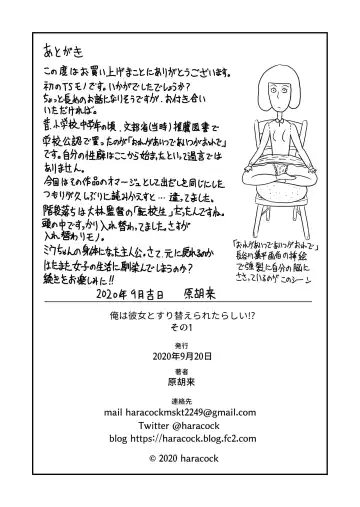 あとがき
この度はお買い上げまことにありがとうございます。
初のTSモノです。いかがでしたでしょうか?
ちょっと長めのお話になりそうですが、お付き合い
いただければ。
昔、小学校、中学年の頃、文部省(当時)推薦図書で
学校公認で買ったのが「おれがあいつであいつがおれで」
です。自分の性癖はここから始まったといって過言では
ありません。
今回はその作品のオマージュとして出だしを同じにした
つもりが久しぶりに読みかえすと…違ってました。
階段落ちは大林監督の「転校生」だったんですね。
頭の中ですっかり入れ替わってました。さすが
入れ替わりモノ。
ミクちゃんの身体になった主人公。さて、元に戻れるのか
はたまた女子の生活に馴染んでしまうのか?
続きをお楽しみに!!
2020年9月吉日 原胡来
「おれがあいつであいつがおれで」
長谷川集平画伯の挿絵
で強烈に自分の脳に
ささっているのがこのシーン
俺は彼女とすり替えられたらしい!?
その1
発行
2020年9月20日
著者
原胡来
連絡先
mail haracockmskt2249@gmail.com
Twitter @haracock
blog https://haracock.blog.fc2.com
© 2020 haracock